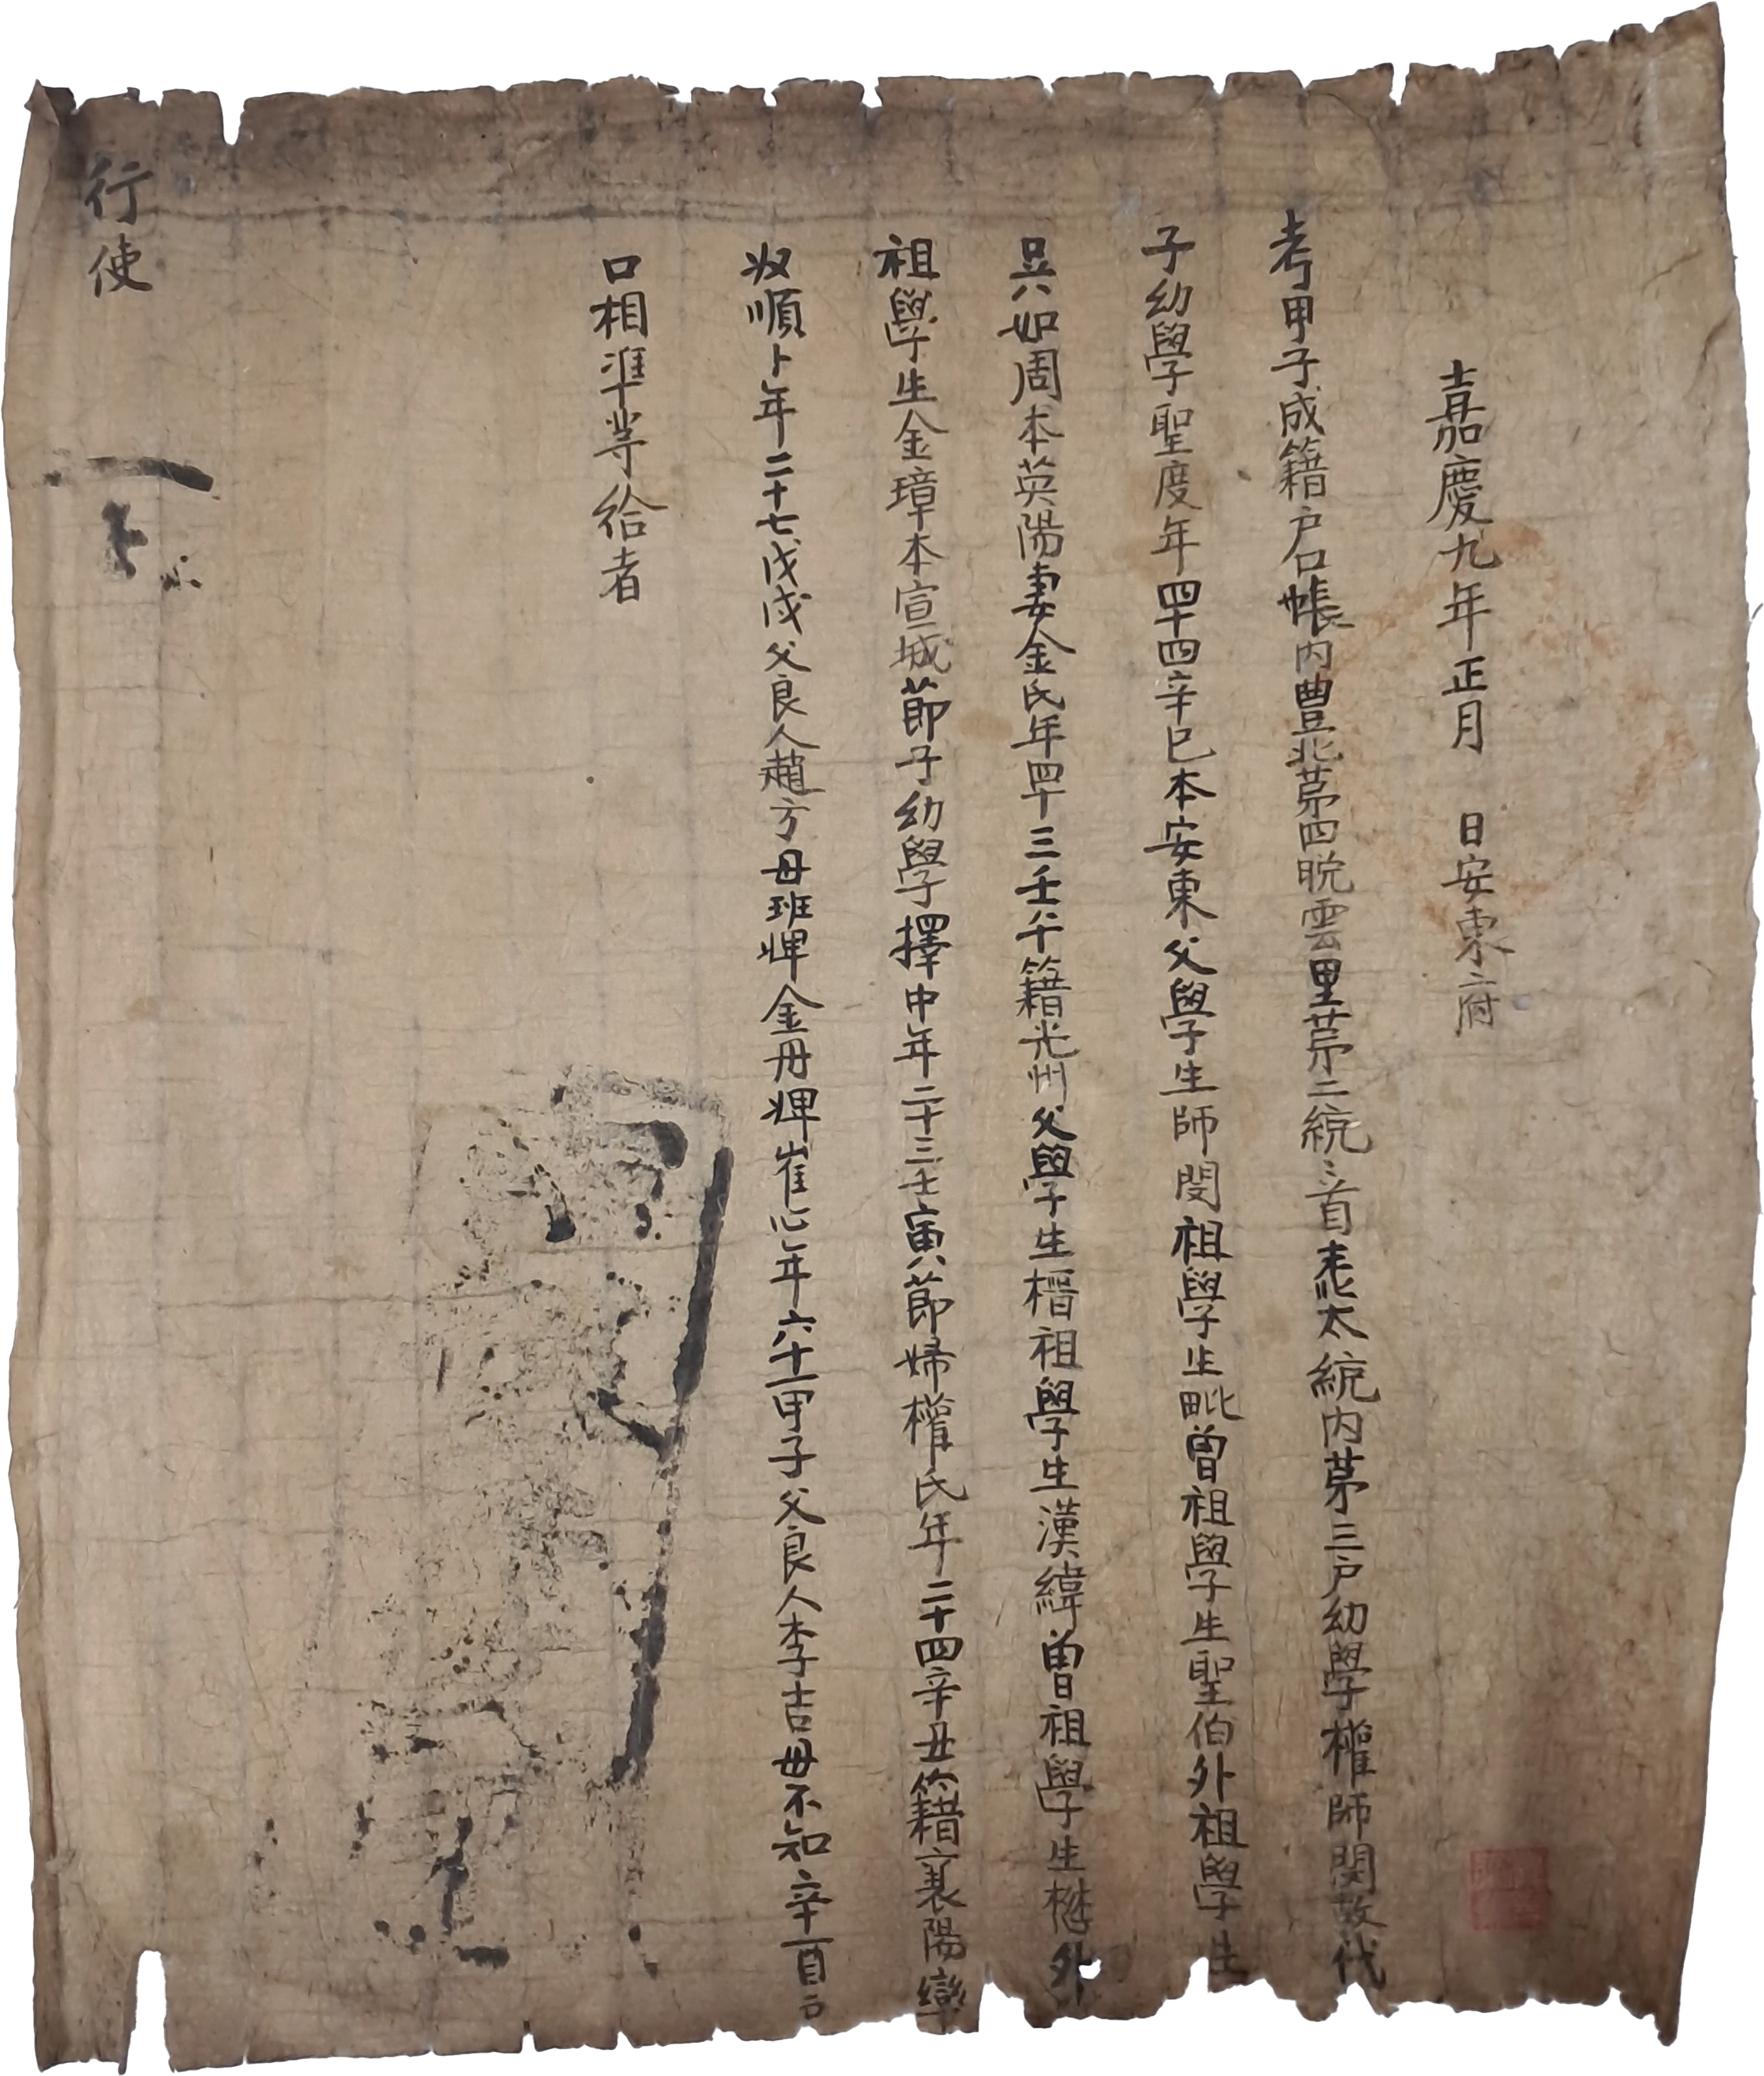 嘉慶九年正月 日安東府
考甲子成籍戶口帳內豊北苐四晥雲里苐二統〻首 太統內苐三戶幼學權師閔故代
子幼學聖度年四十四辛巳本安東父學生師閔祖學生毗曾祖學生聖伯外祖學生
吳如周本英陽妻金氏年四十三壬午籍光州父學生榗祖學生漢緯曾祖學生櫾外
祖學生金璋本宣城節子幼學擇中年二十三壬寅節婦權氏年二十四辛丑籍襄陽
奴順卜年二十七戊戌父良人趙方母班婢金丹婢崔 年六十一甲子父良人李吉母不知辛酉
口相準等給者
行
使